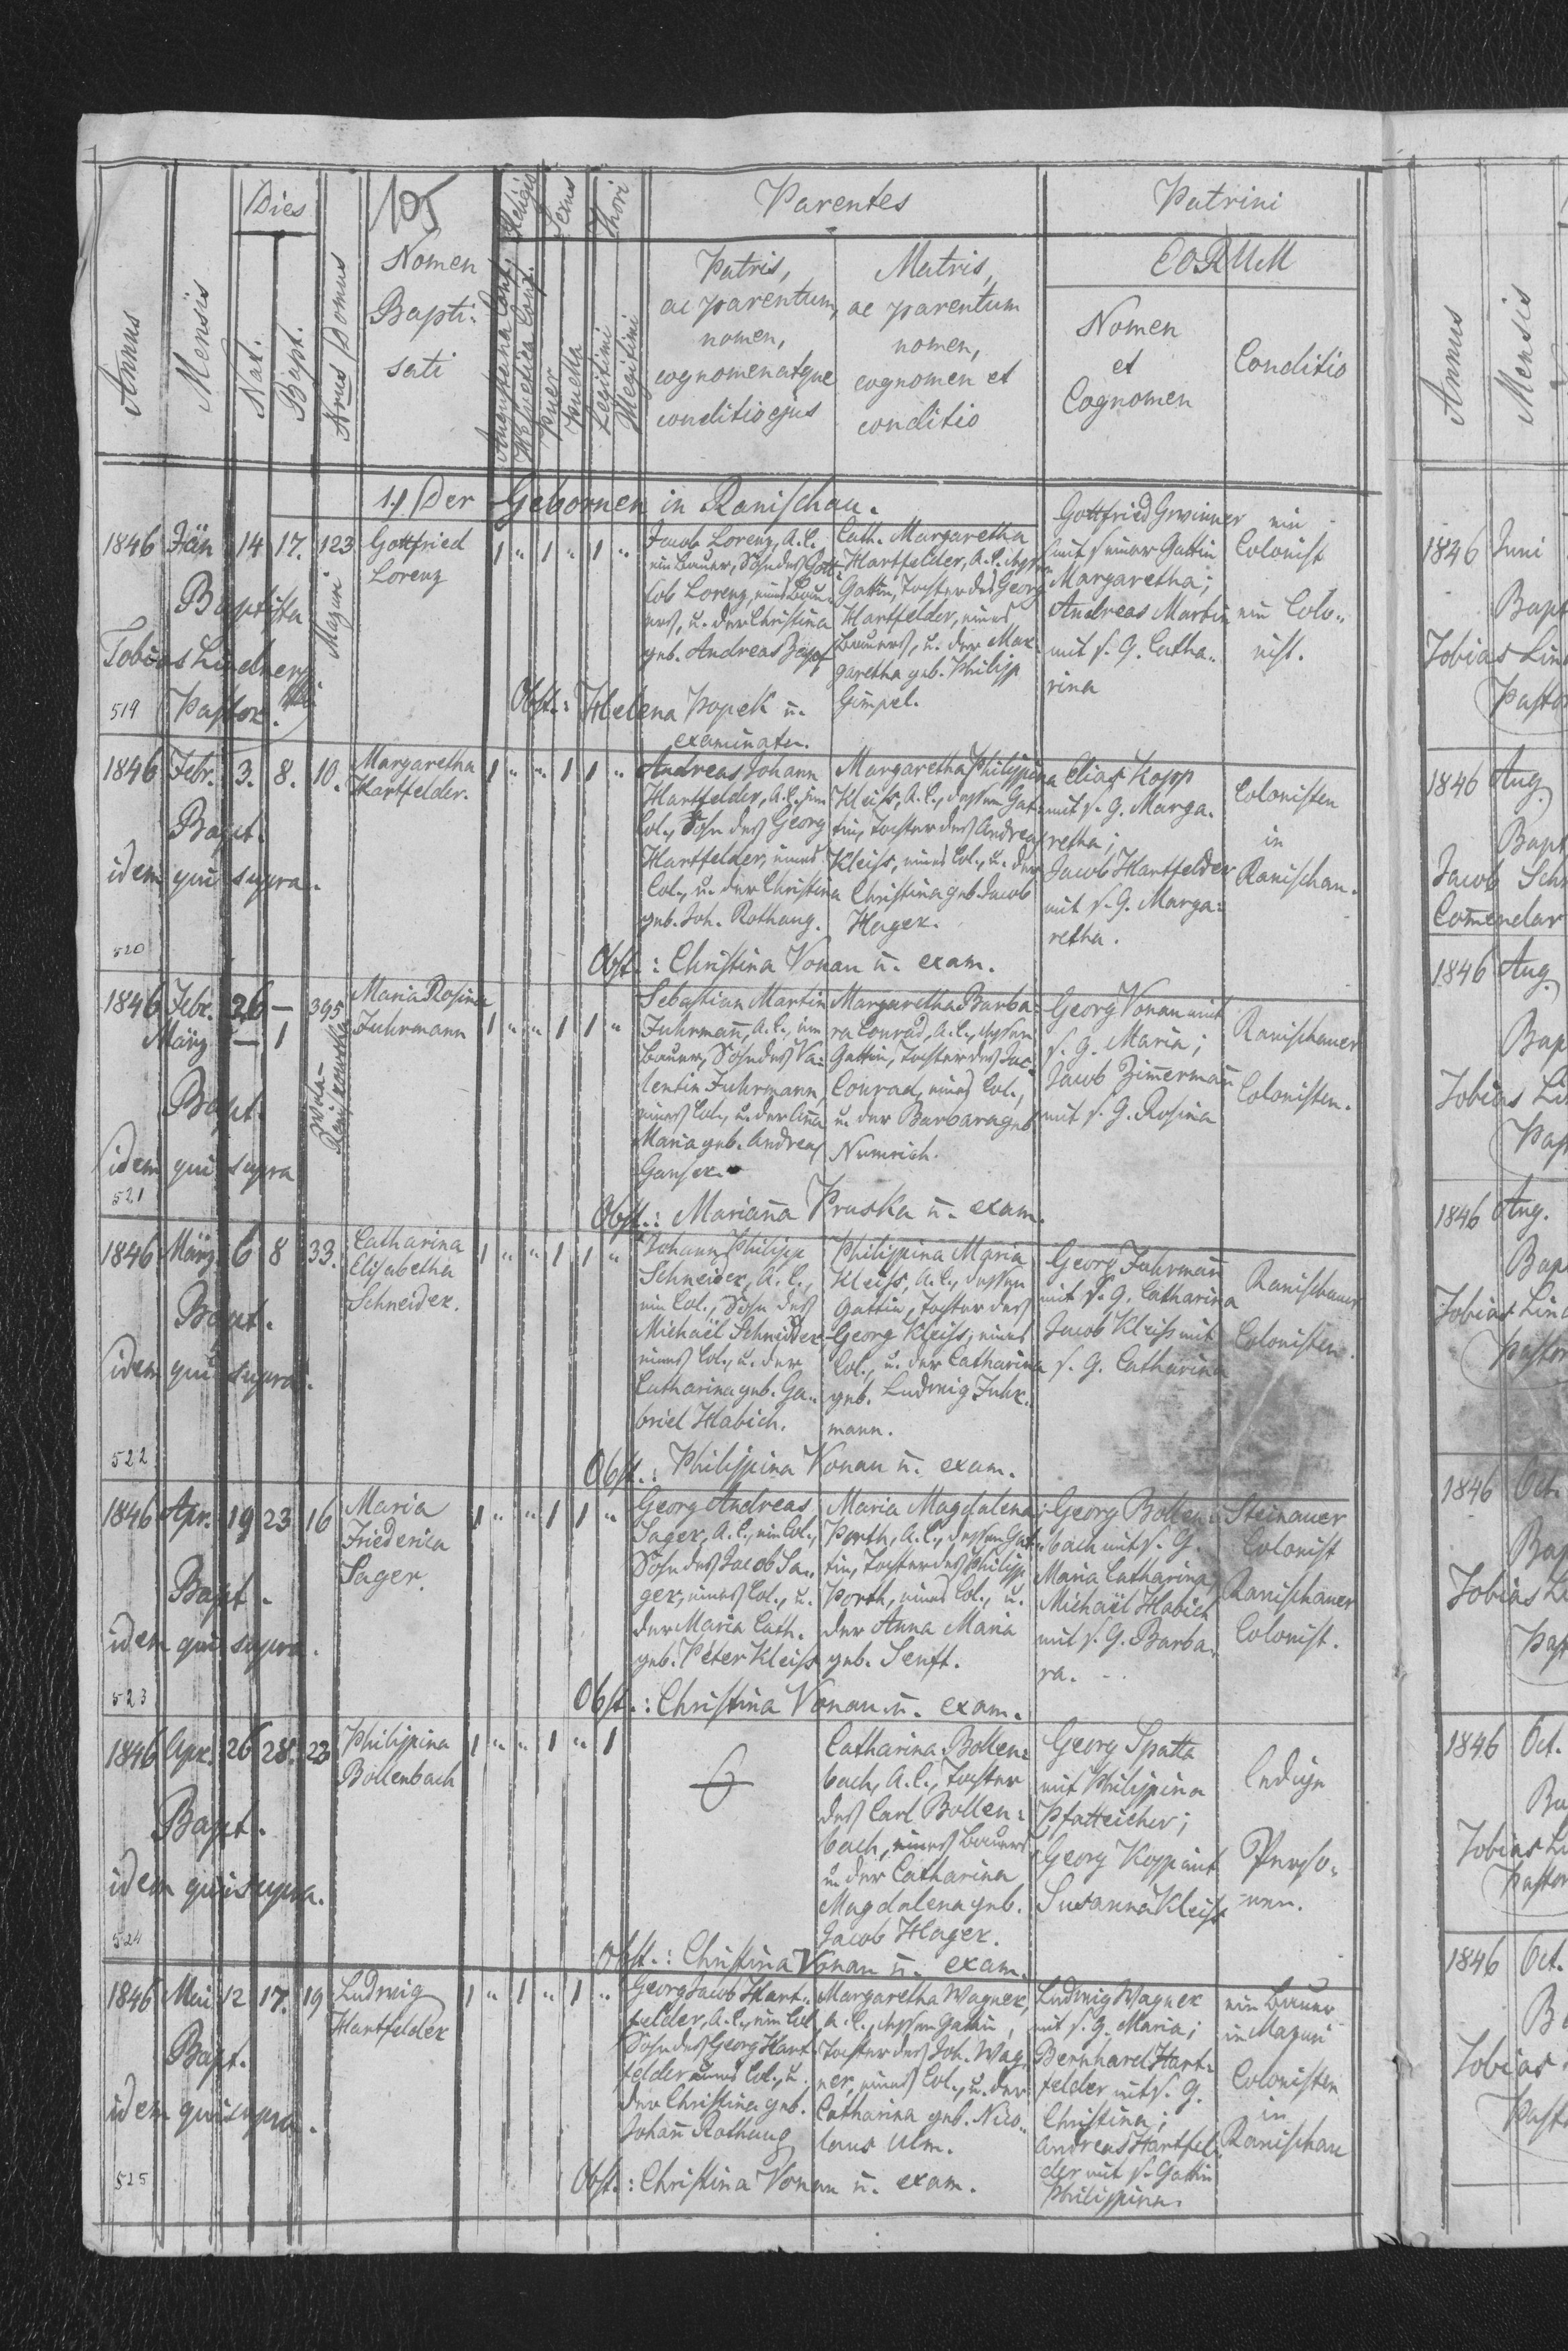 105
Dies
Religio
Sexus
Thori
Parentes
Patrini
Annus
Mensis
Nat.
Bapt.
Nrus Domus
Nomen
Bapti-
sati
Augustana Conf.
Helvetica Conf.
Puer
Puella
Legitimi
Illegitimi
Patris,
ac parentum,
nomen,
cognomen atque
conditio ejus
Matris,
ac parentum
nomen,
cognomen et
conditio
EORUM
Nomen
et
Cognomen
Conditio
1.) Der Gebornen in Ranischau.
1846 Jän 14 17. 123 Mazuri
Baptista
Tobias
Pastor.
519
Gottfried
Lorenz
1 " 1 " 1 "
Jacob Lorenz, A.C.,
ein Bauer, Sohn des Gott-
lob Lorenz, eines Bau-
ers, u. der Christina
geb. Andreas
Cath. Margaretha
Hartfelder, A.C.,
Gattin, Tochter des Georg
Hartfelder, eines
Bauers, u. der Mar-
garetha geb. Philipp
Gimpel.
Gottfried Gwinner
mit seiner Gattin
Margaretha;
Andreas Martin
mit s. G. Catha-
rina
ein
Colonist
ein Colo-
nist.
Obst.: Helena Popek u.
examinaten.
1846 Febr. 3. 8. 10.
Bapt.
idem qui supra.
520
Margaretha
Hartfelder.
1 " " 1 1 "
Andreas Johann
Hartfelder, A.C., ein
Col., Sohn des Georg
Hartfelder, eines
Col., u. der Christina
geb. Joh. Rothaug.
Margaretha Philippina
Kleiss, A.C., dessen Gat-
tin, Tochter des Andreas
Kleiss, eines Col., u. der
Christina geb. Jacob
Hager.
Elias Kopp
mit s. G. Marga-
retha;
Jacob Hartfelder
mit s. G. Marga-
retha.
Colonisten
in
Ranischau.
Obst.: Christina Vonau u. exam.
1846 Febr. 26 — 395
März — 1
Bapt.
idem qui supra
521
Maria Rosina
Fuhrmann
1 " " 1 1 "
Sebastian Martin
Fuhrmann, A.C., ein
Bauer, Sohn des Va-
lentin Fuhrmann,
eines Col., u. der Anna
Maria geb. Andreas
Ganser.
Margaretha Barba-
ra Conrad, A.C., dessen
Gattin, Tochter des Jac.
Conrad, eines Col.,
u. der Barbara geb.
Numrich.
Georg Vonau mit
s. G. Maria;
Jacob Zimermann
mit s. G. Rosina
Ranischauer
Colonisten.
Obst.: Mariana Pruska u. exam.
1846 März 6 8 33.
Bapt.
idem qui supra.
522
Catharina
Elisabetha
Schneider.
1 " " 1 1 "
Johann Philipp
Schneider, A.C.,
ein Col., Sohn des
Michaël Schneider,
eines Col., u. der
Catharina geb. Ga-
briel Habich.
Philippina Maria
Kleiss, A.C., dessen
Gattin, Tochter des
Georg Kleiss, eines
Col., u. der Catharina
geb. Ludwig Fuhr-
mann.
Georg Fuhrmann
mit s. G. Catharina
Jacob Kleiss mit
s. G. Catharina
Ranischauer
Colonisten.
Obst.: Philippina Vonau u. exam.
1846 Apr. 19 23 16
Bapt.
idem qui supra.
523
Maria
Friederica
Sager.
1 " " 1 1 "
Georg Andreas
Sager, A.C., ein Col.,
Sohn des Jacob Sa-
ger, eines Col., u.
der Maria Cath.
geb. Peter Kleiss
Maria Magdalena
Porth, A.C., dessen Gat-
tin, Tochter des Philipp
Porth, eines Col., u.
der Anna Maria
geb. Senft.
Georg Bollen-
bach mit s. G.
Maria Catharina,
Michaël Habich
mit s. G. Barba-
ra.
Steinauer
Colonist
Ranischauer
Colonist.
Obst.: Christina Vonau u. exam.
1846 Apr. 26 28. 23
Bapt.
idem qui supra.
524
Philippina
Bollenbach
1 " " 1 " 1
Catharina Bollen-
bach, A.C., Tochter
des Carl Bollen-
bach, eines Bauers
u. der Catharina
Magdalena geb.
Jacob Hager.
Georg Spatta
mit Philippina
Pfatteicher;
Georg Kopp mit
Susanna Kleiss
ledige
Perso-
nen.
Obst.: Christina Vonau u. exam.
1846 Mai 12 17. 19
Bapt.
idem qui supra.
525
Ludwig
Hartfelder
1 " 1 " 1 "
Georg Jacob Hart-
felder, A.C., ein Col.
Sohn des Georg Hart-
felder eines Col., u.
der Christina geb.
Johann Rothaug
Margaretha Wagner,
A.C., dessen Gattin,
Tochter des Joh. Wag-
ner, eines Col., u. der
Catharina geb. Nico-
laus Ulm.
Ludwig Wagner
mit s. G. Maria;
Bernhard Hart-
felder mit s. G.
Christina;
Andreas Hartfel-
der mit s. Gattin
Philippina.
ein Bauer
in Mazuri
Colonisten
in
Ranischau
Obst.: Christina Vonau u. exam.
Annus
Mensis
1846 Juni
Bapt
Tobias Lin
Pastor
1846 Aug.
Bapt
Jacob Sch
Comendar
1846 Aug.
Bap
Tobias Li
Past
1846 Aug.
Bap
Tobias Lin
Pastor
1846 Oct.
Bap
Tobias Li
Past
1846 Oct.
Ba
Tobias Li
Pastor
1846 Oct.
B
Tobias
Past